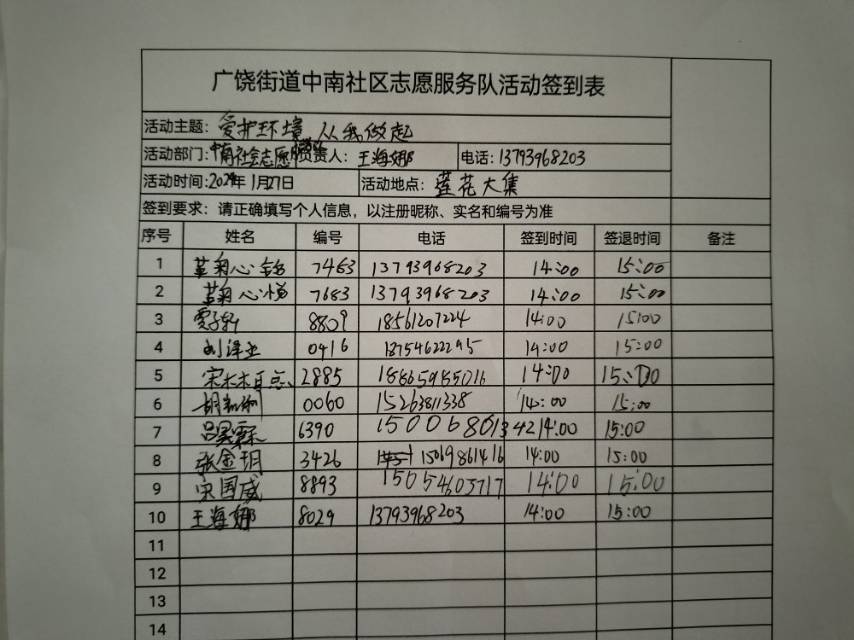 广饶街道中南社区志愿服务队活动签到表
活动主题：爱护环境 从我做起
活动部门：中南社会志愿 负责人：王海娜 电话：13793968203
活动时间：2024年1月27日 活动地点：莲花大集
签到要求：请正确填写个人信息，以注册昵称、实名和编号为准
序号 姓名 编号 电话 签到时间 签退时间 备注
1 心 7463 13793968203 14:00 15:00
2 心怡 7683 13793968203 14:00 15:00
3 8809 18561207224 14:00 15:00
4 刘泽 0416 18754622295 14:00 15:00
5 宋 2885 14:00 15:00
6 胡 0060 15263811338 14:00 15:00
7 吕昊霖 6390 15006801342 14:00 15:00
8 张金玥 3426 15069861416 14:00 15:00
9 宋国威 8893 15054603717 14:00 15:00
10 王海娜 8029 13793968203 14:00 15:00
11
12
13
14